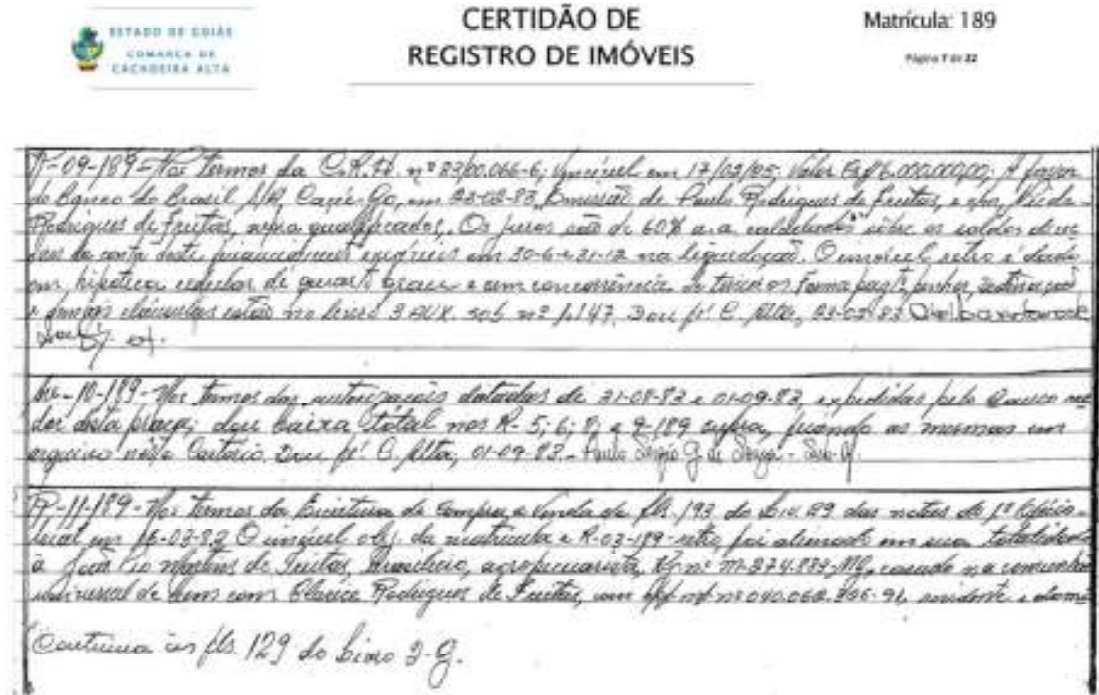 ESTADO DE GOIÁS
COMARCA DE
CACHOEIRA ALTA
CERTIDÃO DE
REGISTRO DE IMÓVEIS
Matrícula: 189
Página 7 de 22
R-09-189-Nos termos da C.R.H. nº 83/00.066-6, vencível em 17/02/85. Valor 6.000.000,00. A favor
do Banco do Brasil S/A, Caçú-Go, em 23-02-83, Emissão de Paulo Rodrigues de Freitas, e
Rodrigues de Freitas, qualificados. Os juros são de 60% a.a. calculados sobre os saldos deve
dores da conta deste financiamento exigíveis em 30-6 e 31-12 na liquidação. O imóvel retro é dado
em hipoteca cedular de quarto grau e sem concorrência de terceiros Forma pagtº, penhor,
e demais cláusulas estão no livro 3 AUX. sob nº 1.147. Dou fé. C. Alta, 03-03-83
Av-10-189-Nos termos das autorizações datadas de 31-08-83 e 01-09-83, expedidas pelo Banco
desta praça; dou baixa total nos R-5; 6; 8; e 9-189 supra, ficando as mesmas em
arquivo neste Cartório. Dou fé. C. Alta, 01-09-83.-
R-11-189-Nos termos da Escritura de Compra e Venda de fls. 193 do Liv. 29 das notas do 1º
local em 16-03-83. O imóvel obj. da matrícula e R-03-189-retro, foi alienado em sua totalidade
à de Freitas, brasileiro, agropecuarista, nº M-374.839-MG, casado na comunhão
universal de bens com Clarice Rodrigues de Freitas, com residente e domi
Continua às fls. 129 do livro 2-G.